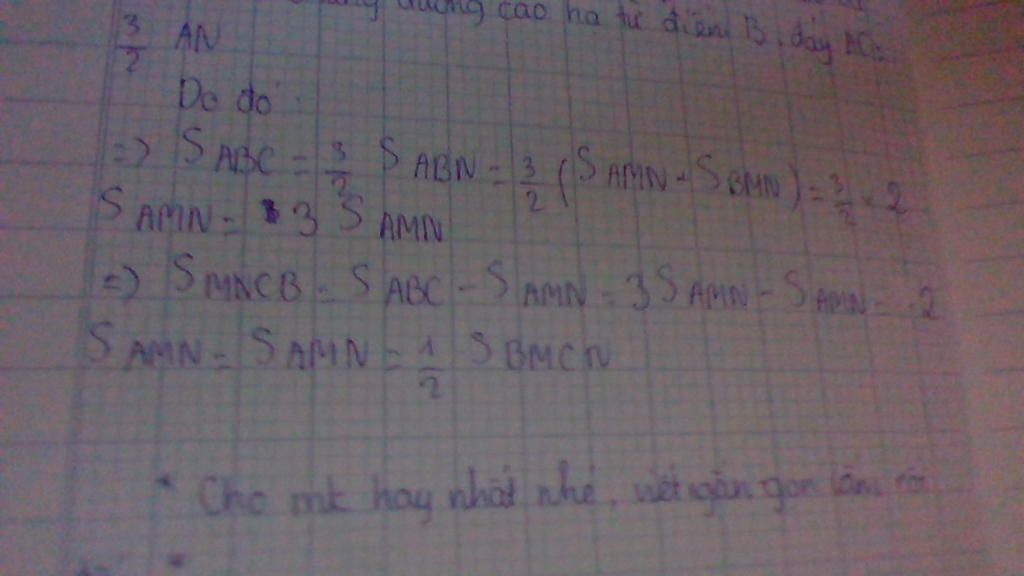 đường cao hạ từ điểm B, đáy AC =
3/2 AN
Do đó :
=> S ABC = 3/2 S ABN = 3/2 (S AMN - S BMN) = 3/2 × 2
S AMN = 3 S AMN
=> S MNCB = S ABC - S AMN = 3 S AMN - S AMN = 2
S AMN = S AMN = 1/2 S BMCN
* Cho mk hay nhất nhé, viết gắn gọn lắm rồi